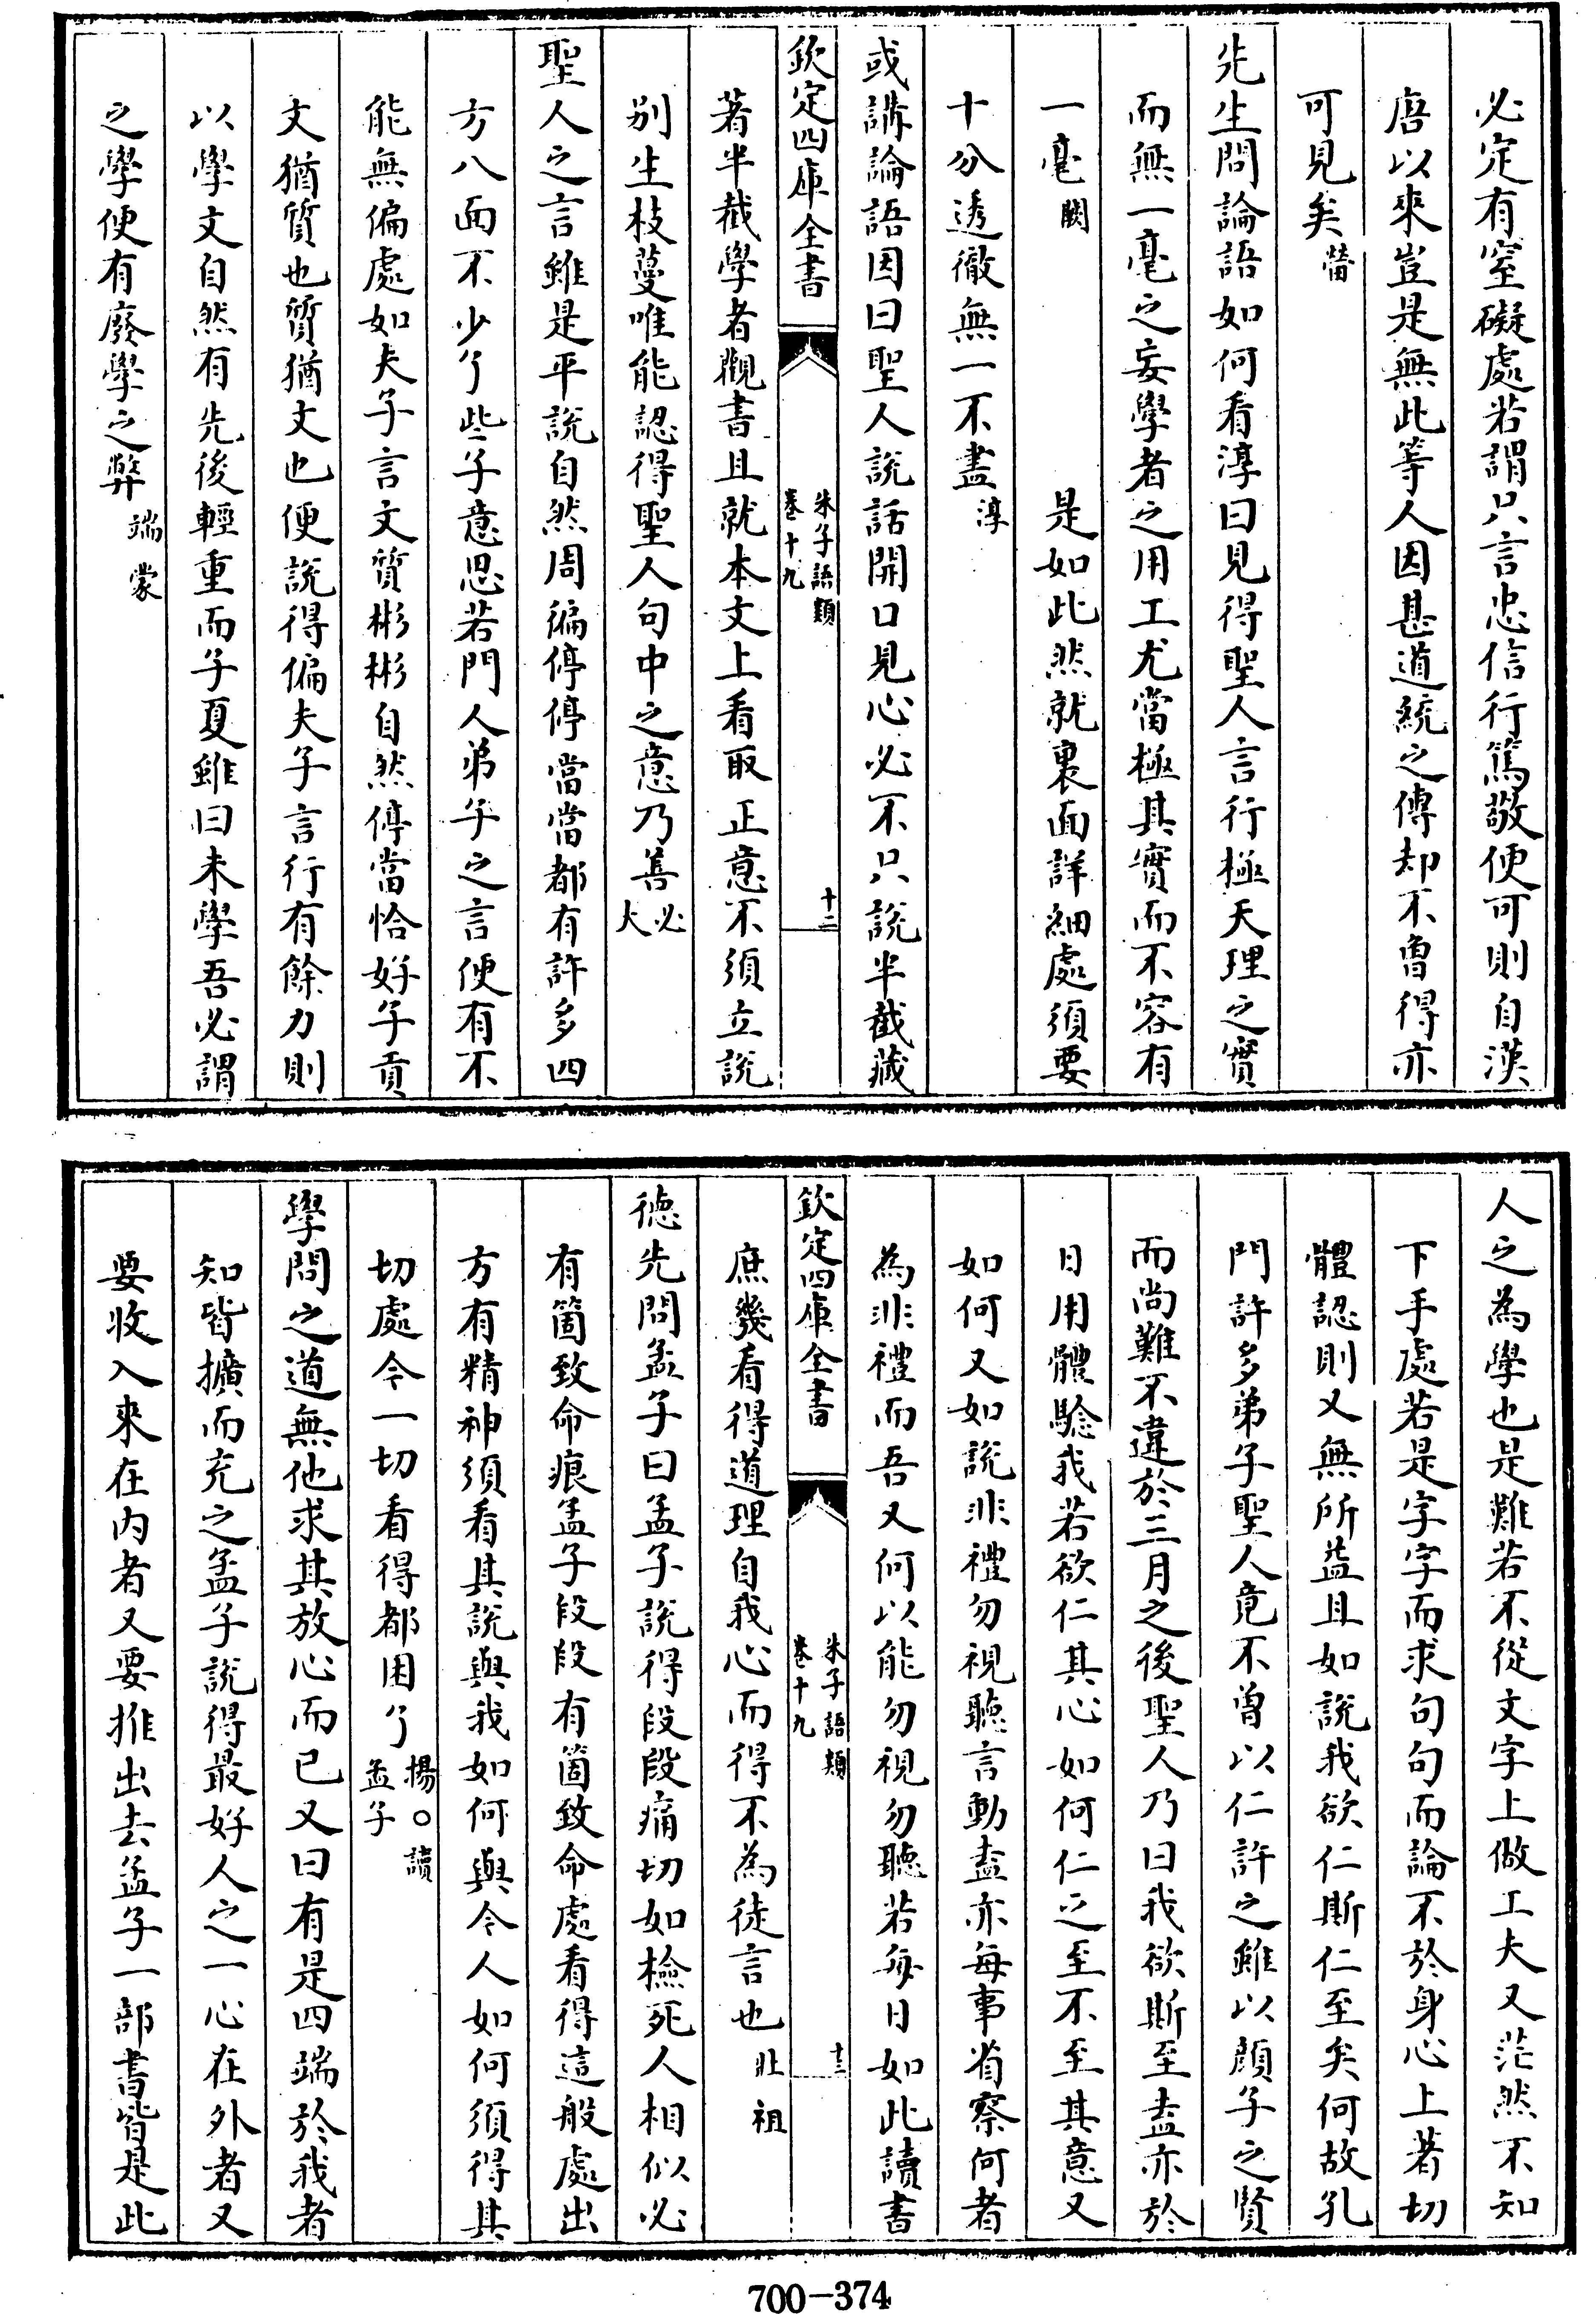 必定有窒礙處若謂只言忠信行篤敬便可則自漢
唐以來豈是無此等人因甚道統之傳却不曾得亦
可見矣㽦
先生問論語如何看淳曰見得聖人言行極天理之實
而無一毫之妄學者之用工尤當極其實而不容有
一毫闕 是如此然就裏面詳細處須要
十分透徹無一不盡淳
或講論語因曰聖人說話開口見心必不只說半截藏
欽定四庫全書 朱子語類 卷十九 十二
著半截學者觀書且就本文上看取正意不須立說
别生枝蔓唯能認得聖人句中之意乃善必大
聖人之言雖是平說自然周徧停停當當都有許多四
方八面不少了些子意思若門人弟子之言便有不
能無偏處如夫子言文質彬彬自然停當恰好子貢
文猶質也質猶文也便說得偏夫子言行有餘力則
以學文自然有先後輕重而子夏雖曰未學吾必謂
之學便有廢學之弊端蒙
人之為學也是難若不從文字上做工夫又茫然不知
下手處若是字字而求句句而論不於身心上著切
體認則又無所益且如說我欲仁斯仁至矣何故孔
門許多弟子聖人竟不曾以仁許之雖以顔子之賢
而尚難不違於三月之後聖人乃曰我欲斯至盍亦於
日用體驗我若欲仁其心如何仁之至不至其意又
如何又如說非禮勿視聽言動盍亦每事省察何者
為非禮而吾又何以能勿視勿聽若每日如此讀書
欽定四庫全書 朱子語類 卷十九 十三
庶幾看得道理自我心而得不為徒言也壯祖
徳先問孟子曰孟子說得段段痛切如檢死人相似必
有箇致命痕孟子段段有箇致命處看得這般處出
方有精神須看其說與我如何與今人如何須得其
切處今一切看得都困了揚○讀孟子
學問之道無他求其放心而已又曰有是四端於我者
知皆擴而充之孟子說得最好人之一心在外者又
要收入來在内者又要推出去孟子一部書皆是此
700-374